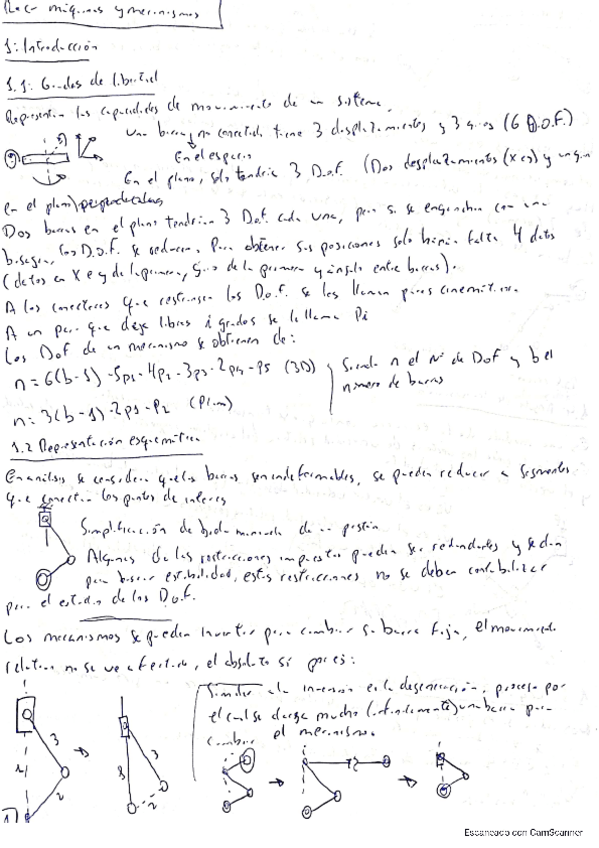 máquinas y mecanismos
1: Introducción
1.1: Grados de libertad
Representan las capacidades de movimiento de un sistema,
una barra no conectada tiene 3 desplazamientos y 3 giros (6 D.o.F.)
En el espacio
En el plano, solo tendría 3 D.o.F. (Dos desplazamientos (x e y) y un giro
en el plano) perpendicular
Dos barras en el plano tendrían 3 Dof cada una, pero si se enganchan con una
bisagra, los D.o.F. se reducen. Para obtener sus posiciones solo haría falta 4 datos
(datos en X e y de la primera, giro de la primera y ángulo entre barras).
A los conectores que restringen los D.o.F. se les llaman pares cinemáticos.
A un par que deja libres i grados se le llama Pi
Los DoF de un mecanismo se obtienen de:
n = 6(b-1) -5p1 -4p2 -3p3 -2p4 -p5 (3D)
Siendo n el Nº de DoF y b el
número de barras
n = 3(b-1) -2p1 -P2 (Plano)
1.2 Representación esquemática
En análisis se considera que las barras son indeformables, se pueden reducir a segmentos
que conectan los puntos de interés
Simplificación de biela manivela de un pistón
Algunas de las restricciones impuestas pueden ser redundantes y se dan
para buscar estabilidad, estas restricciones no se deben contabilizar
para el estudio de los D.o.F.
Los mecanismos se pueden invertir para cambiar su barra fija, el movimiento
relativo no se ve afectado, el absoluto sí
Similar a la inversión es la degeneración, proceso por
el cual se alarga mucho (infinitamente) una barra para
cambiar el mecanismo.
3
2
1
3
3
2
Escaneado con CamScanner